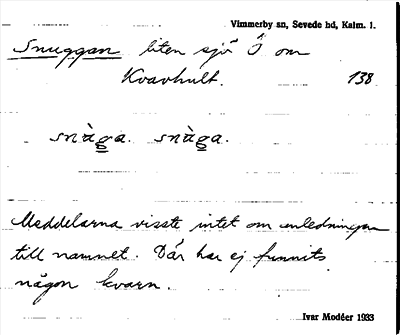 Vimmerby sn, Sevede hd, Kalm. l.
Snuggan liten sjö Ö om
Kvavhult. 138
snùg̲a. snùg̲a.
Meddelarna visste intet om anledningen
till namnet. Där har ej funnits
någon kvarn.
Ivar Modéer 1933